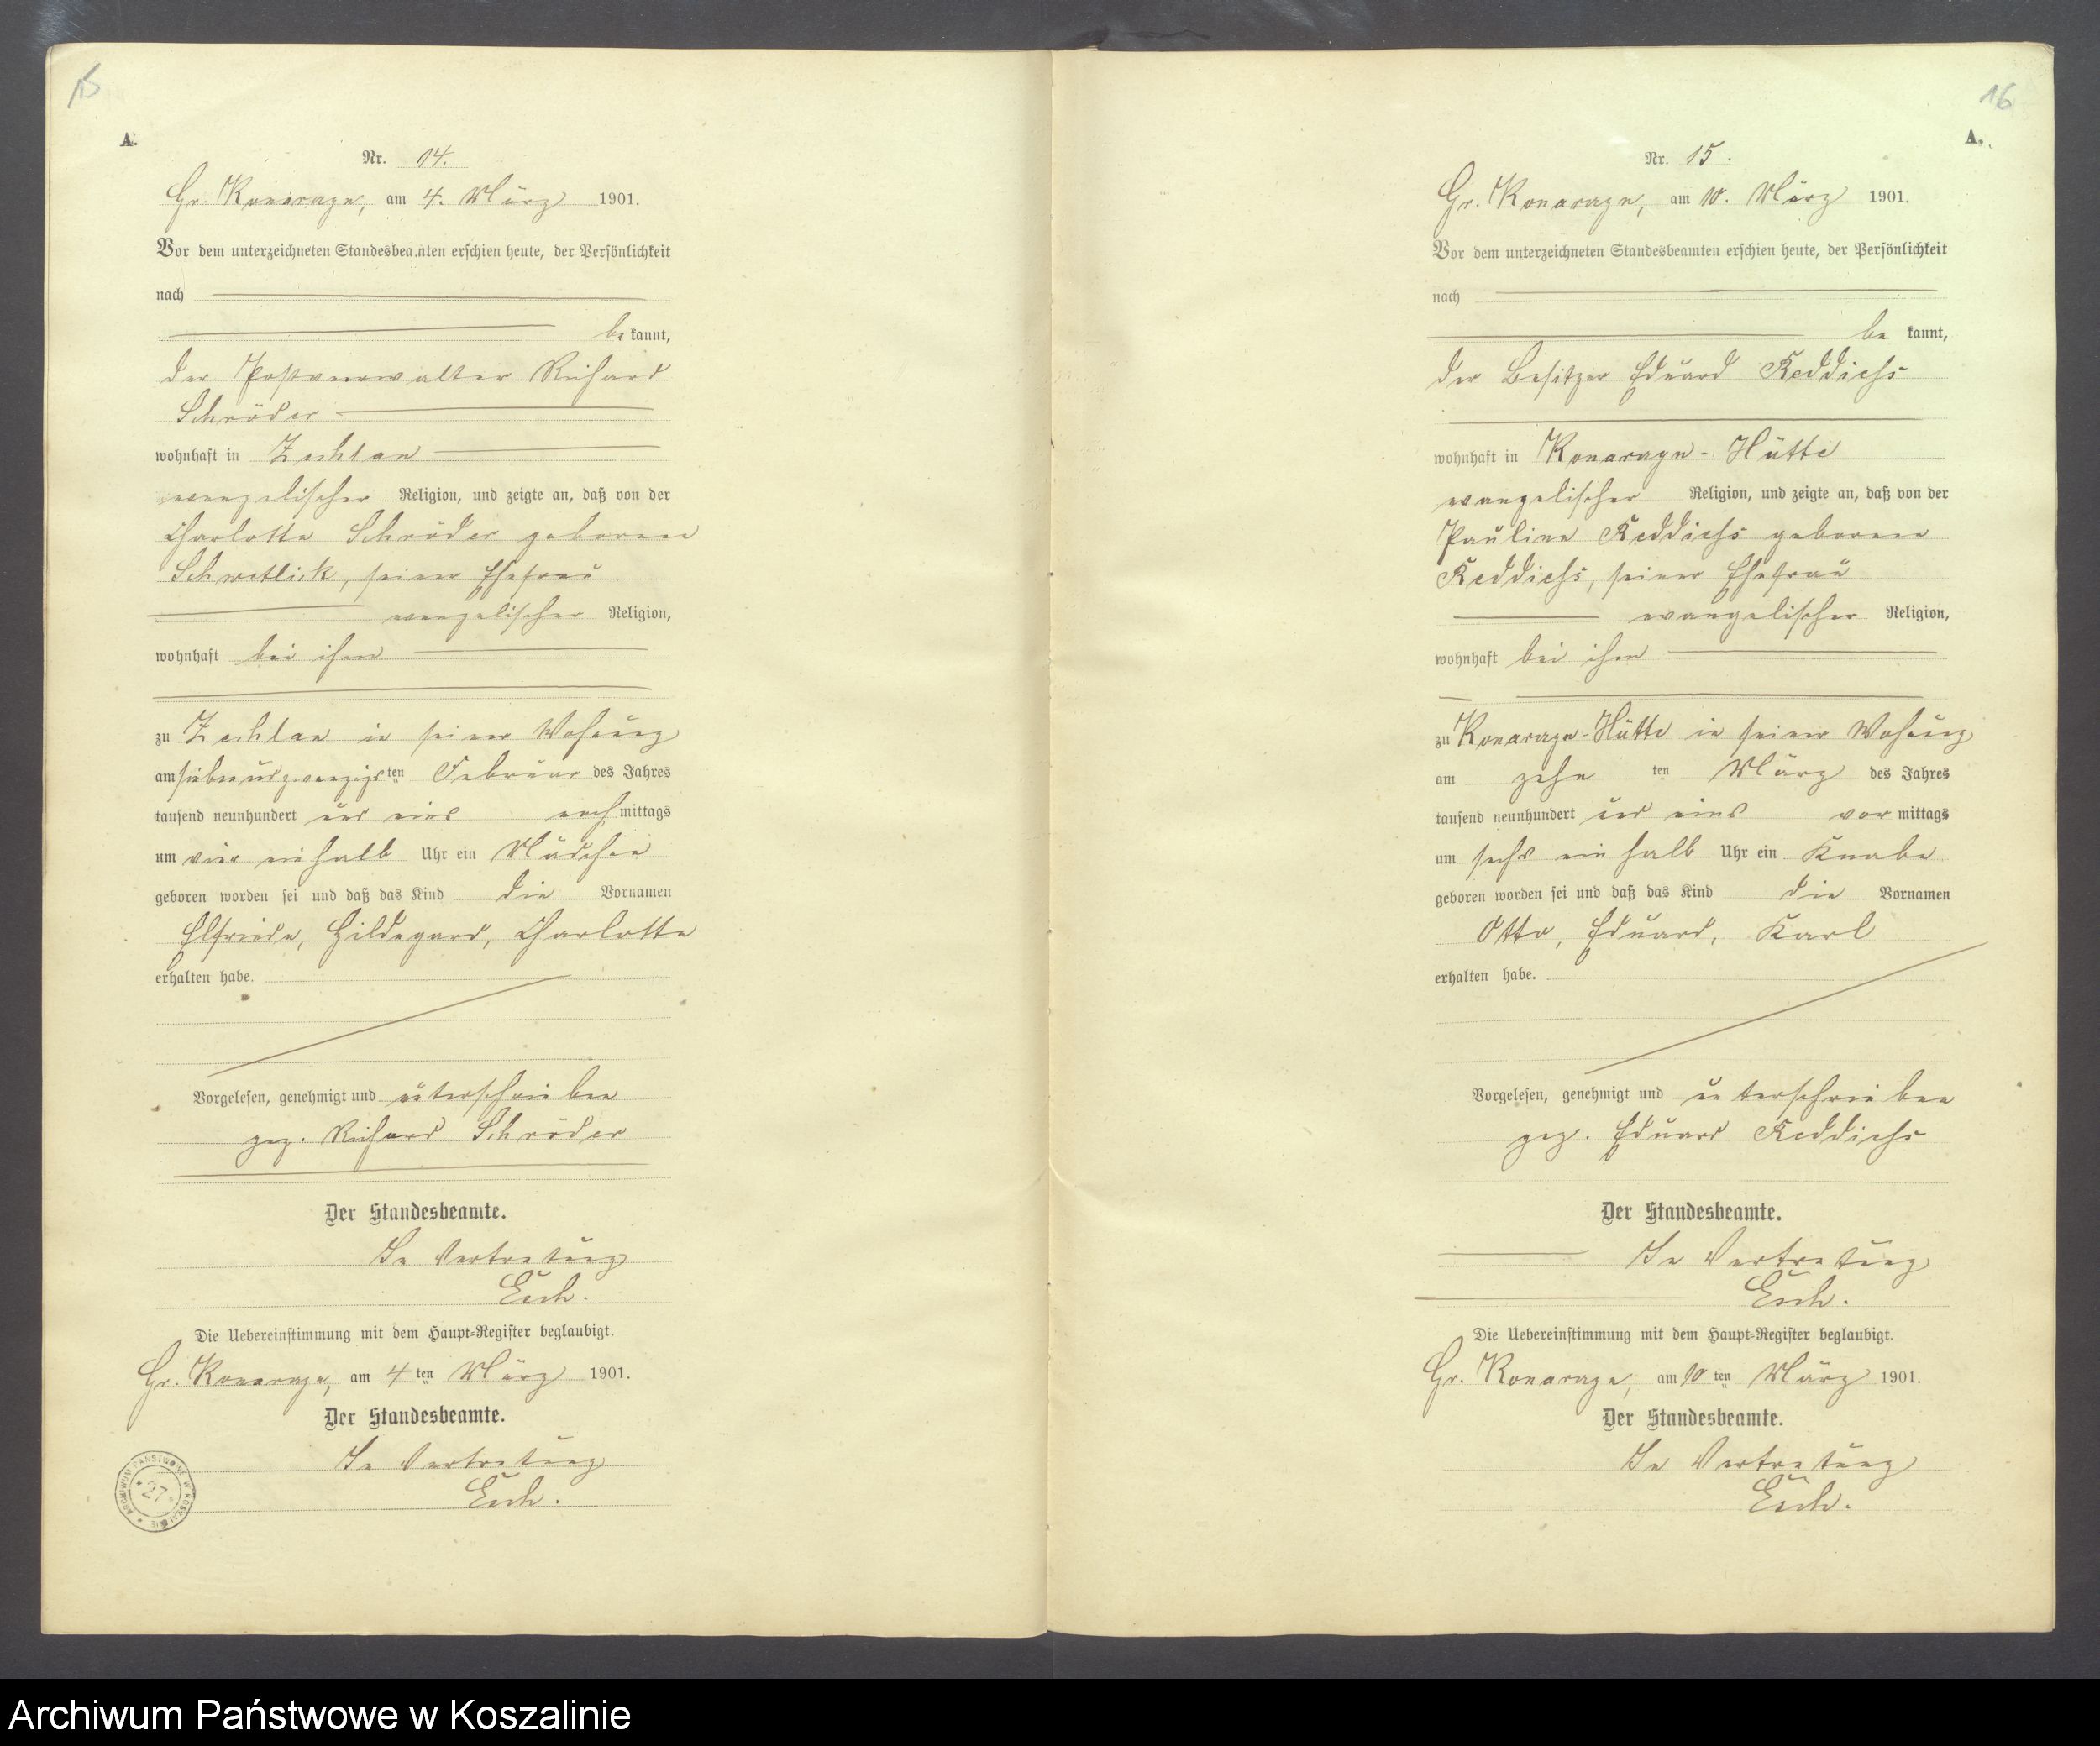 15
A.
Nr. 14.
Gr. Konarzyn, am 4. März 1901.
Vor dem unterzeichneten Standesbeamten erschien heute, der Persönlichkeit
nach
be kannt,
der Postverwalter Richard
Schröder
wohnhaft in Zechlau
evangelischer Religion, und zeigte an, daß von der
Charlotte Schröder geborene
Schwetlick, seiner Ehefrau
evangelischer Religion,
wohnhaft bei ihm
zu Zechlau in seiner Wohnung
am siebenundzwanzigsten Februar des Jahres
tausend neunhundert und eins nach mittags
um vier einhalb Uhr ein Mädchen
geboren worden sei und daß das Kind die Vornamen
Elfriede, Hildegard, Charlotte
erhalten habe.
Vorgelesen, genehmigt und unterschrieben
gez. Richard Schröder
Der Standesbeamte.
In Vertretung
Esch.
Die Uebereinstimmung mit dem Haupt-Register beglaubigt.
Gr. Konarzyn, am 4ten März 1901.
Der Standesbeamte.
In Vertretung
Esch.
ARCHIWUM PAŃSTWOWE W KOSZALINIE
27
16
A.
Nr. 15.
Gr. Konarzyn, am 10. März 1901.
Vor dem unterzeichneten Standesbeamten erschien heute, der Persönlichkeit
nach
be kannt,
der Besitzer Eduard Reddiehs
wohnhaft in Konarzyn-Hütte
evangelischer Religion, und zeigte an, daß von der
Pauline Reddiehs geborene
Reddiehs, seiner Ehefrau
evangelischer Religion,
wohnhaft bei ihm
zu Konarzyn-Hütte in seiner Wohnung
am zehn ten März des Jahres
tausend neunhundert und eins vor mittags
um sechs ein halb Uhr ein Knabe
geboren worden sei und daß das Kind die Vornamen
Otto, Eduard, Karl
erhalten habe.
Vorgelesen, genehmigt und unterschrieben
gez. Eduard Reddiehs
Der Standesbeamte.
In Vertretung
Esch.
Die Uebereinstimmung mit dem Haupt-Register beglaubigt.
Gr. Konarzyn, am 10ten März 1901.
Der Standesbeamte.
In Vertretung
Esch.
Archiwum Państwowe w Koszalinie